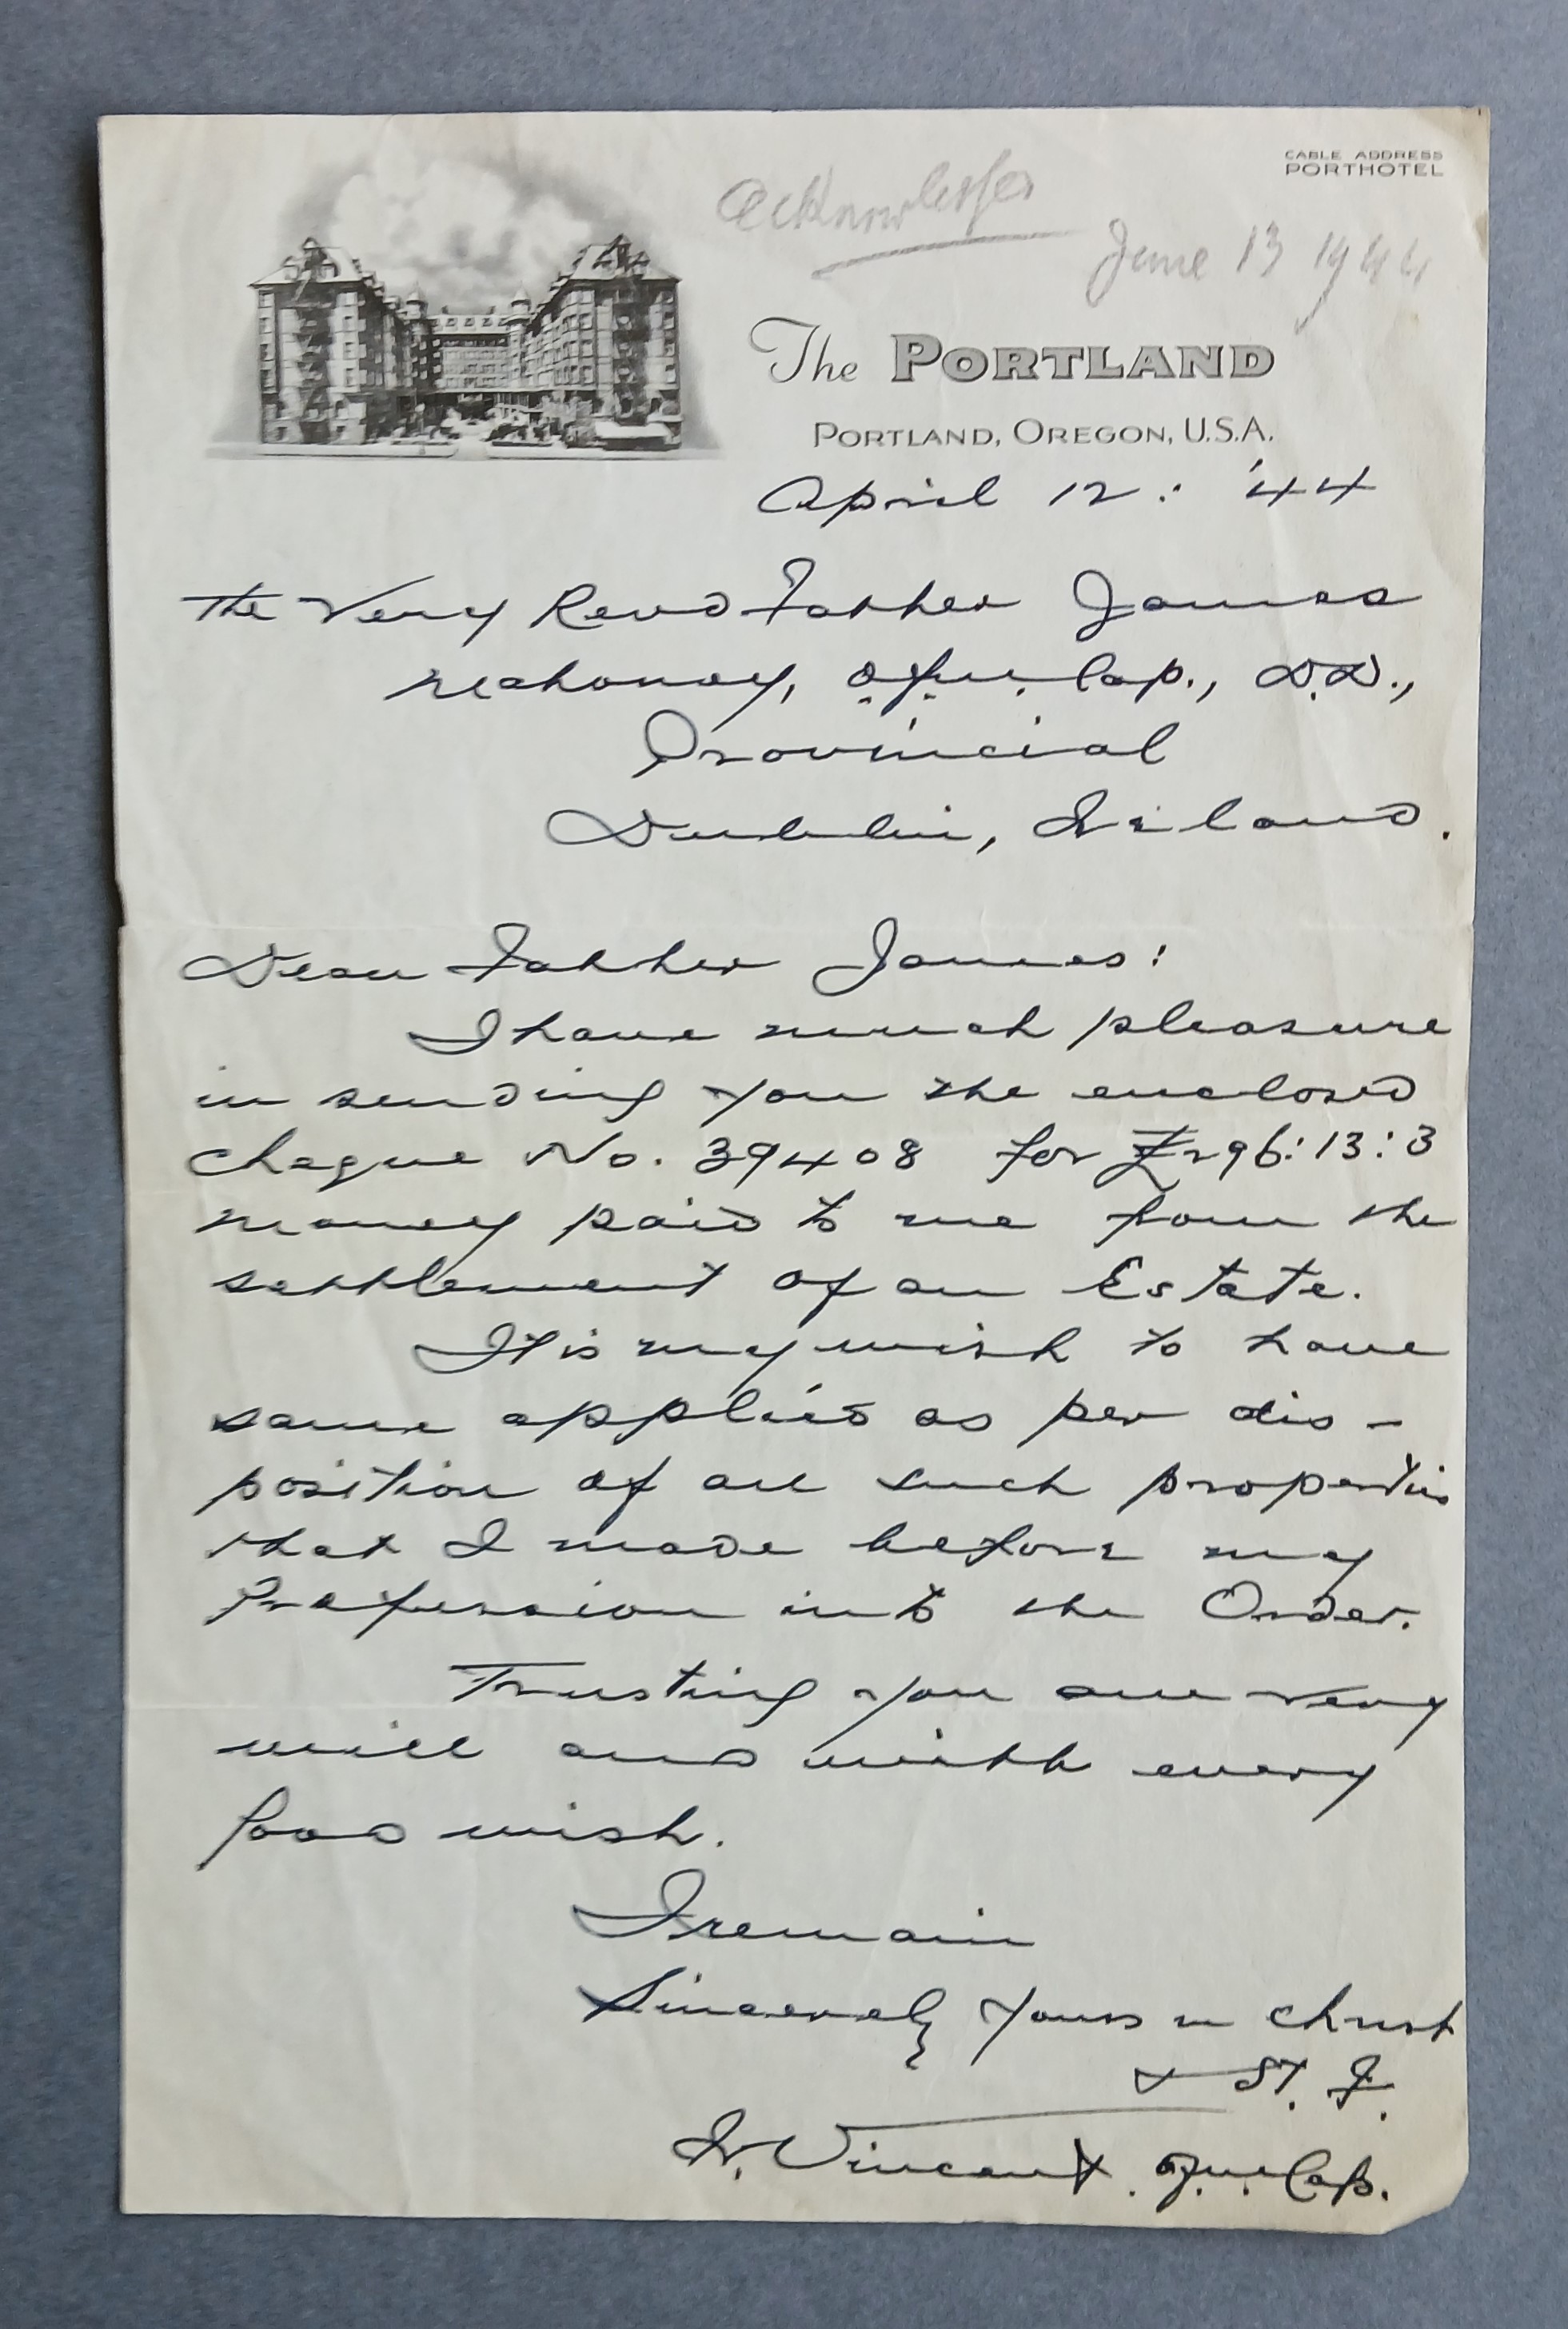 CABLE ADDRESS
PORTHOTEL
Acknowledged
June 13 1944
The PORTLAND
PORTLAND, OREGON, U.S.A.
April 12: '44
The Very Revd Father James
Mahoney, O.F.M. Cap., D.D.,
Provincial
Dublin, Ireland.
Dear Father James:
I have much pleasure
in sending you the enclosed
cheque No. 39408 for £296:13:3
money paid to me from the
settlement of an Estate.
It is my wish to have
same applied as per dis-
position of all such properties
that I made before my
Profession into the Order.
Trusting you are very
well and with every
good wish.
I remain
Sincerely yours in Christ
& St. F.
Fr. Vincent. O.F.M. Cap.